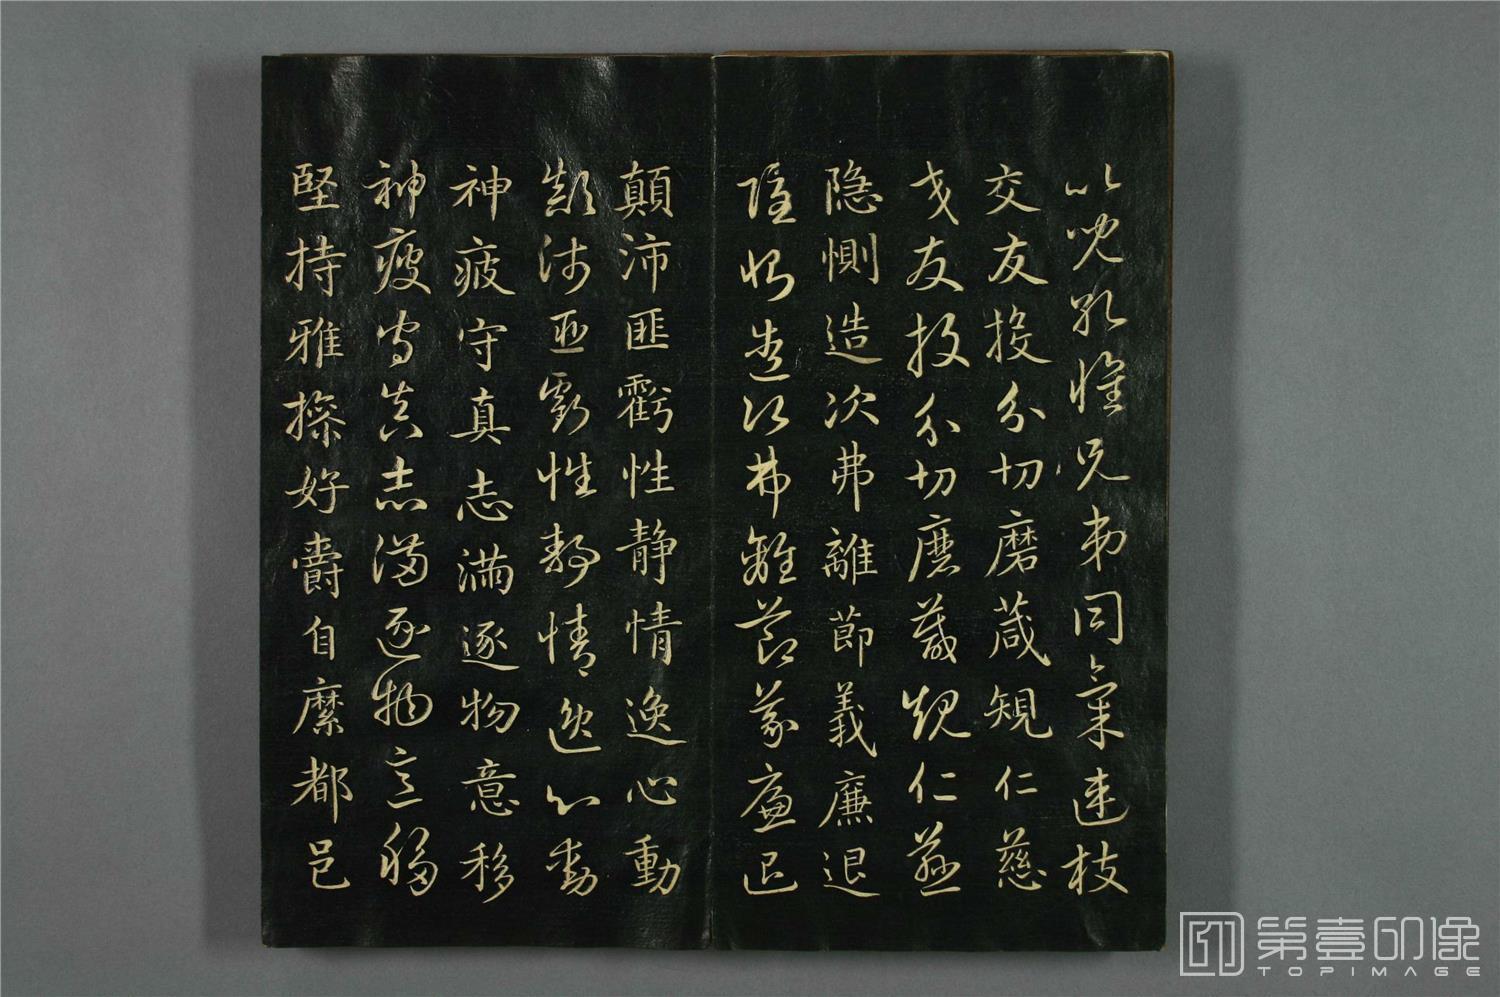 比兒孔懷兄弟同氣連枝
交友投分切磨箴規仁慈
交友投分切磨箴規仁慈
隐惻造次弗離節義廉退
隐惻造次弗離節義廉退
顛沛匪虧性静情逸心動
顛沛匪虧性静情逸心動
神疲守真志滿逐物意移
神疲守真志滿逐物意移
堅持雅操好爵自縻都邑
第壹印像
TOPIMAGE